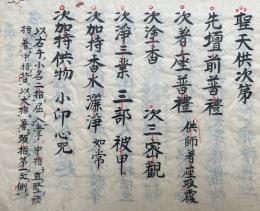 聖天供次第
先壇前普禮
次著座普禮 供師著座取覆
次塗香 次三密觀
次淨三業 三部 被甲
次加持香水 灑淨 如常
次加持供物 小印心咒
以右手小名二指屈入掌中指直竪頭
指著中指背以大指著頭指第文側